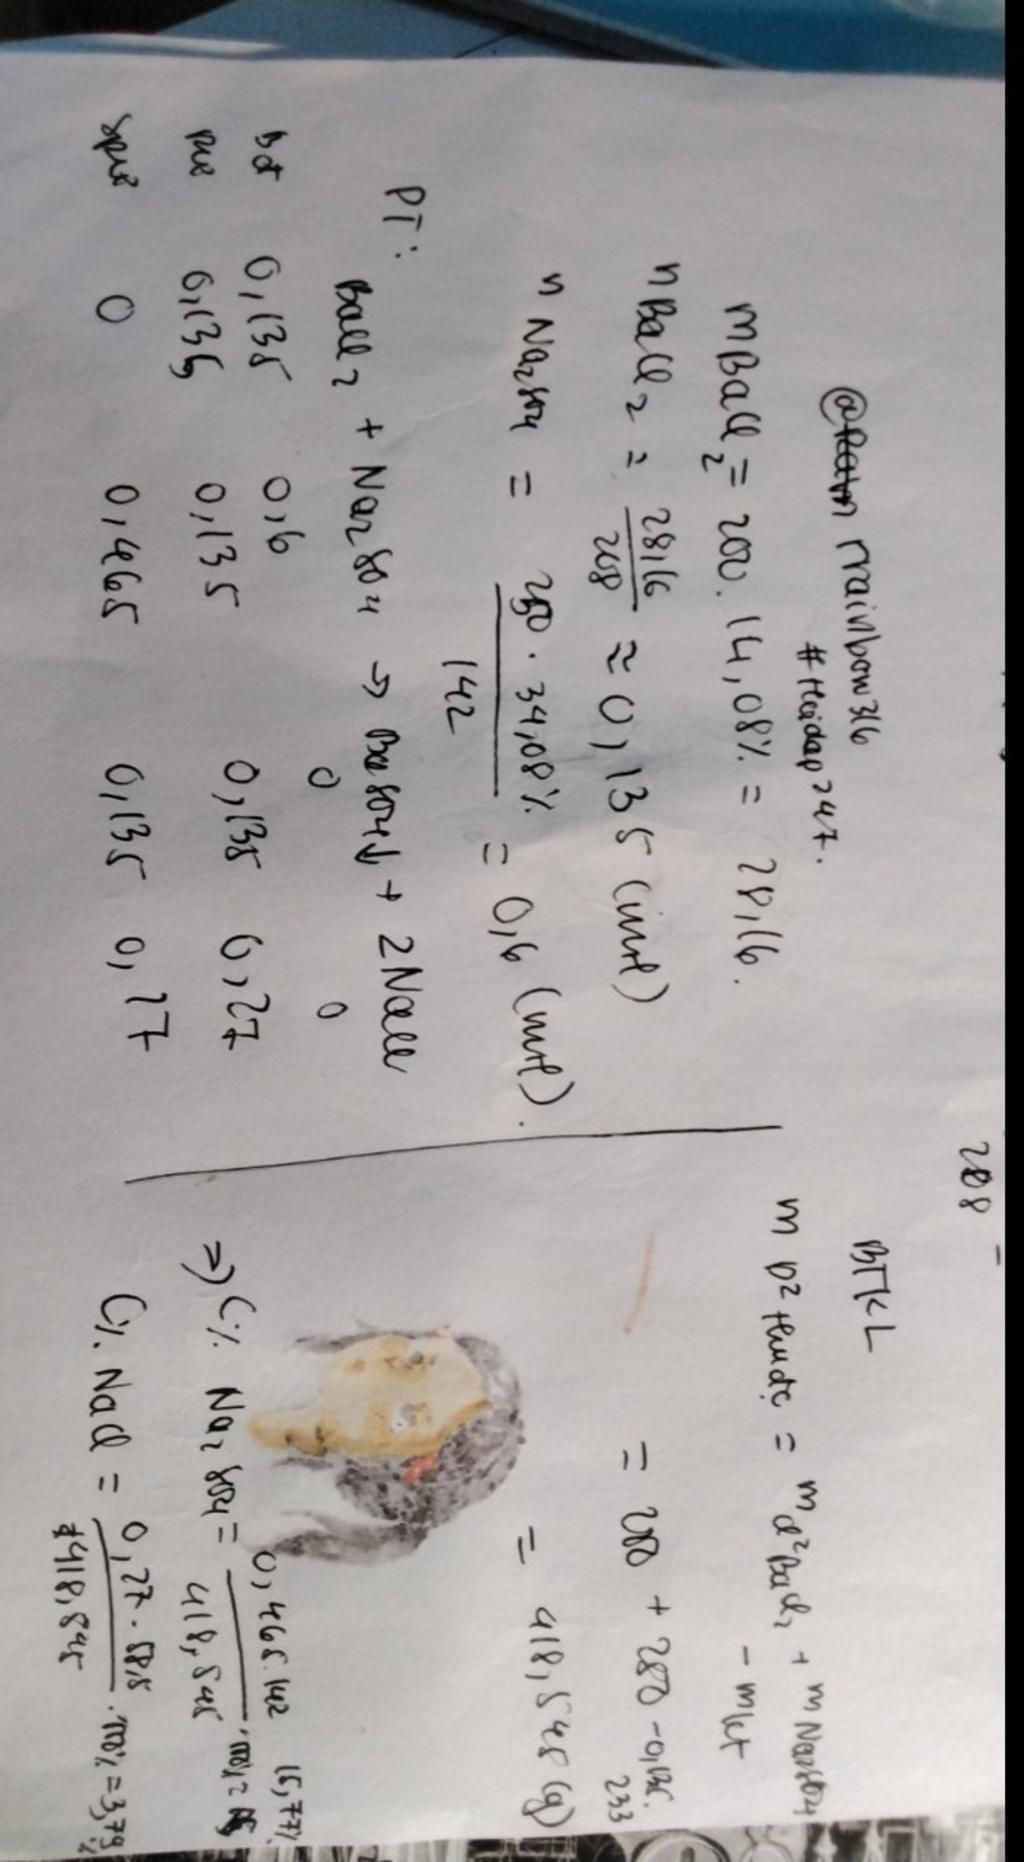 @ rrainbow316
#Hoidap247.
mBaCl2 = 200. 14,08% = 28,16.
nBaCl2 = 2816/208 ≈ 0,135 (mol)
nNa2SO4 = 250.34,08%/142 = 0,6 (mol).
PT:
BaCl2 + Na2SO4 → BaSO4↓ + 2NaCl
Bđ 0,135 0,6 0 0
Pứ 0,135 0,135 0,135 0,27
Spứ 0 0,465 0,135 0,27
208
BTKL
m D² thuđc = m d²BaCl2 + m Na2SO4
- mkt
= 200 + 250 - 0,135. 233
= 418,545 (g)
=> C% Na2SO4 = 0,465.142/418,545 .100% = 15,77%
C% NaCl = 0,27.58,5/418,545 .100% = 3,79%